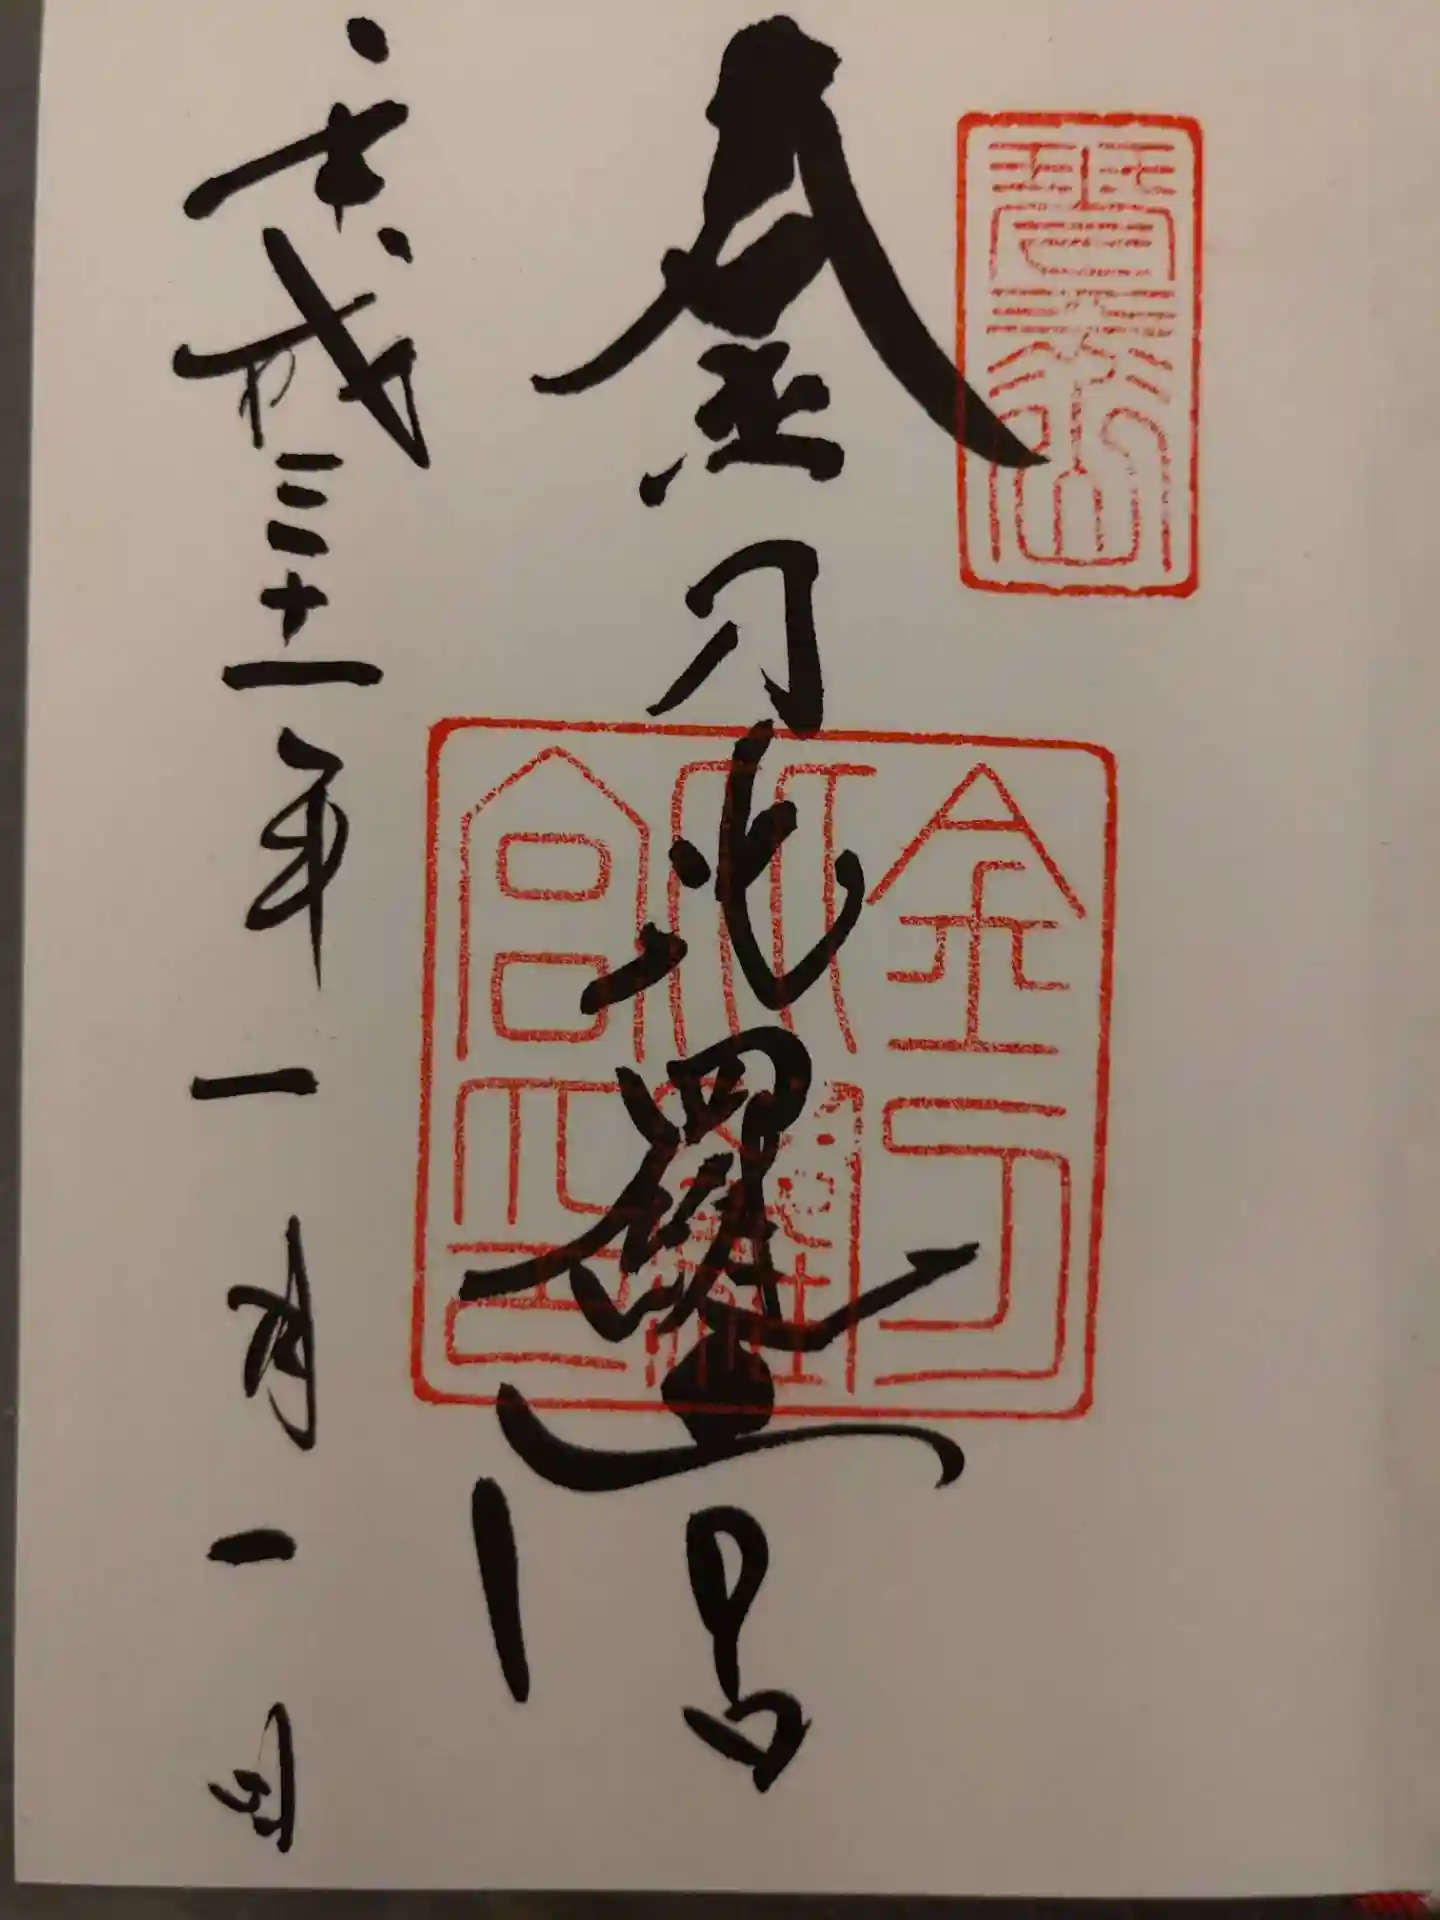 金刀比羅宮
平成三十一年一月一日
金刀比羅宮印